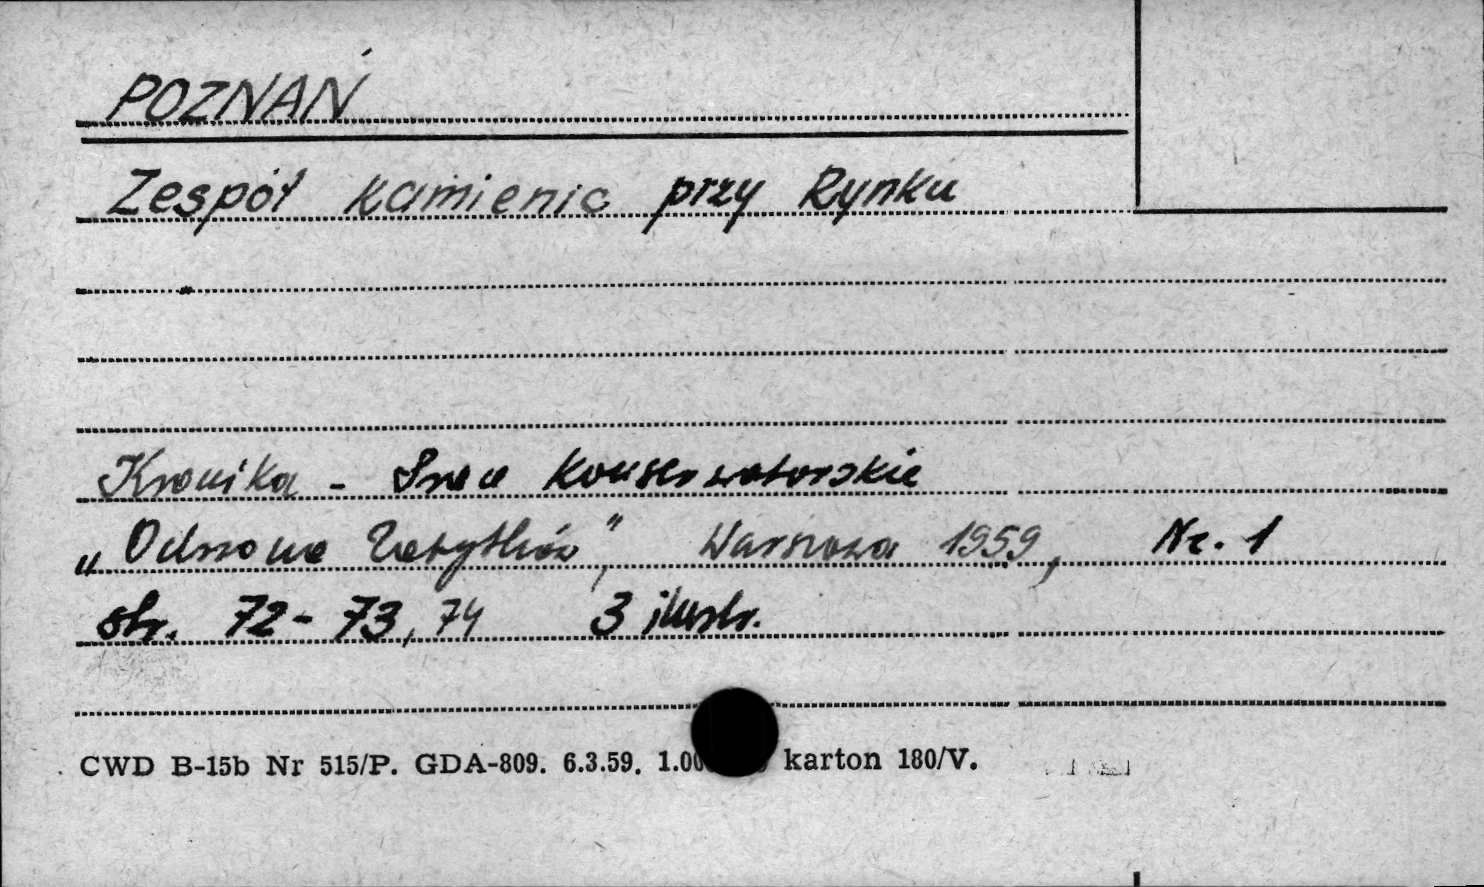 POZNAŃ
Zespół kamienic przy Rynku
Kronika - Prace Konserwatorskie
„Ochrona Zabytków”, Warszawa 1959, Nr. 1
str. 72-73, 74 3 ilustr.
CWD B-15b Nr 515/P. GDA-809. 6.3.59. 1.00 karton 180/V.